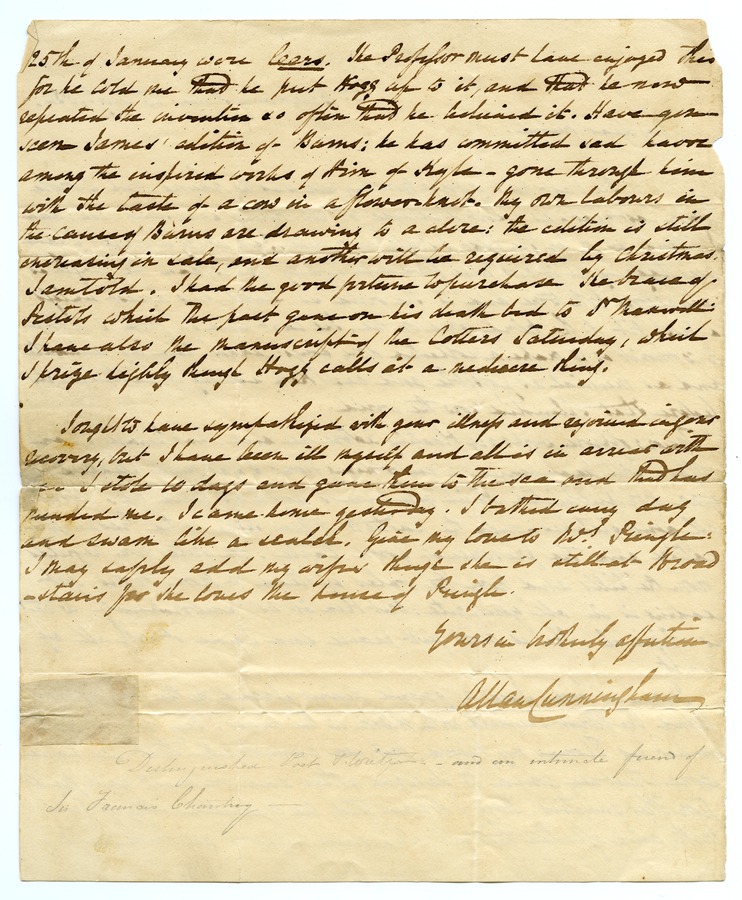 25th of January were lears. The Professor must have enjoyed this
for he told me that he put Hogg up to it, and that he now
repeated the invention so often that he believed it. Have you
seen James' edition of Burns: he has committed sad havoc
among the inspired works of Him of Kyle – gone through him
with the taste of a cow in a flower-knot. My own labours in
the causey Burns are drawing to a close: the edition is still
encreasing in sale, and another will be required by Christmas
I am told. I had the good fortune to purchase the brace of
Pistols which the poet gave on his death bed to Dr Maxwell:
I have also the manuscript of the Cotters Saturday, which
I prize highly though Hogg calls it a mediocre thing.
I ought to have sympathized with your illness and rejoiced in your
recovery, but I have been ill myself and all is in arrear with
I stole 10 days and gave them to the sea and that has
mended me. I came home yesterday. I bathed every day
and swam like a sealch. Give my love to Mrs Pringle:
I may safely add my wifes though she is still at Broad
-stairs for she loves the house of Pringle.
Yours in brotherly affection
Allan Cunningham
Distinguished Poet & Writer – and an intimate friend of
Sir Francis Chantrey –